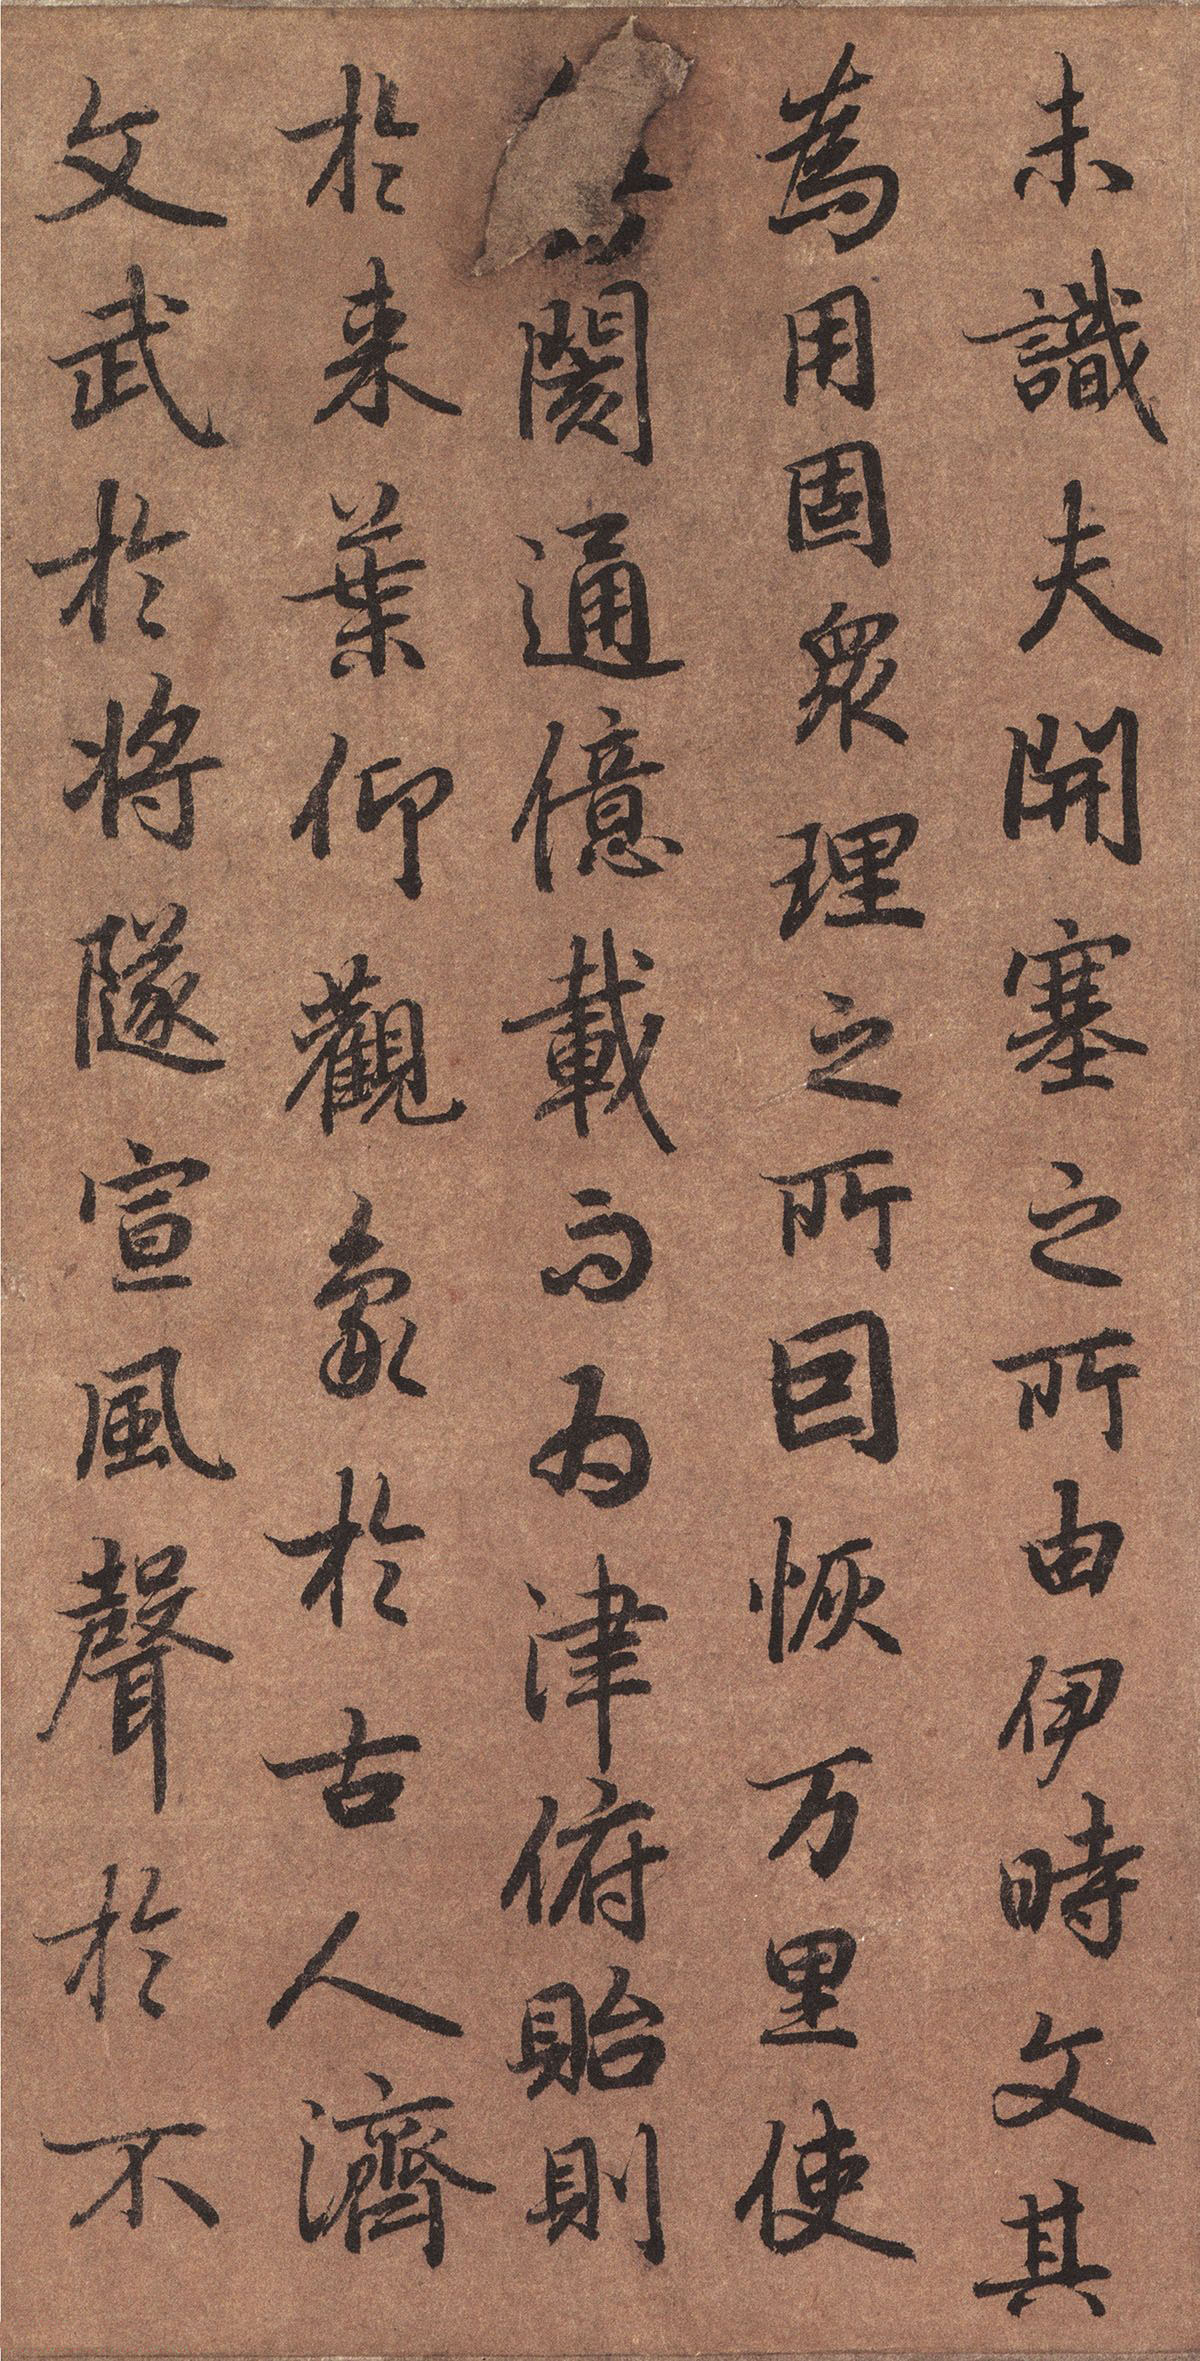 未識夫開塞之所由伊時文其
為用固眾理之所因恢万里使
閡通億載而為津俯貽則
於来葉仰觀象於古人濟
文武於將隊宣風聲於不